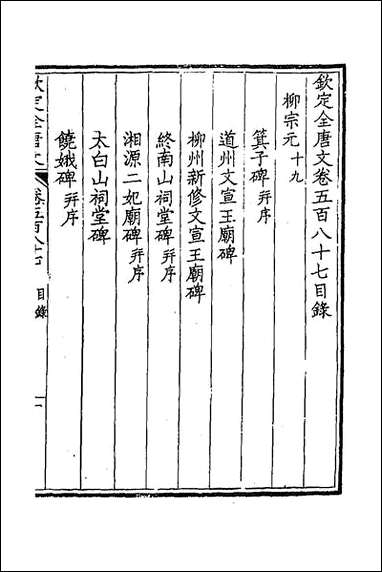 欽定全唐文卷五百八十七目録
柳宗元十九
箕子碑并序
道州文宣王廟碑
柳州新修文宣王廟碑
終南山祠堂碑并序
湘源二妃廟碑并序
太白山祠堂碑
饒娥碑并序
欽定全唐文 卷五百八十七 目録 一